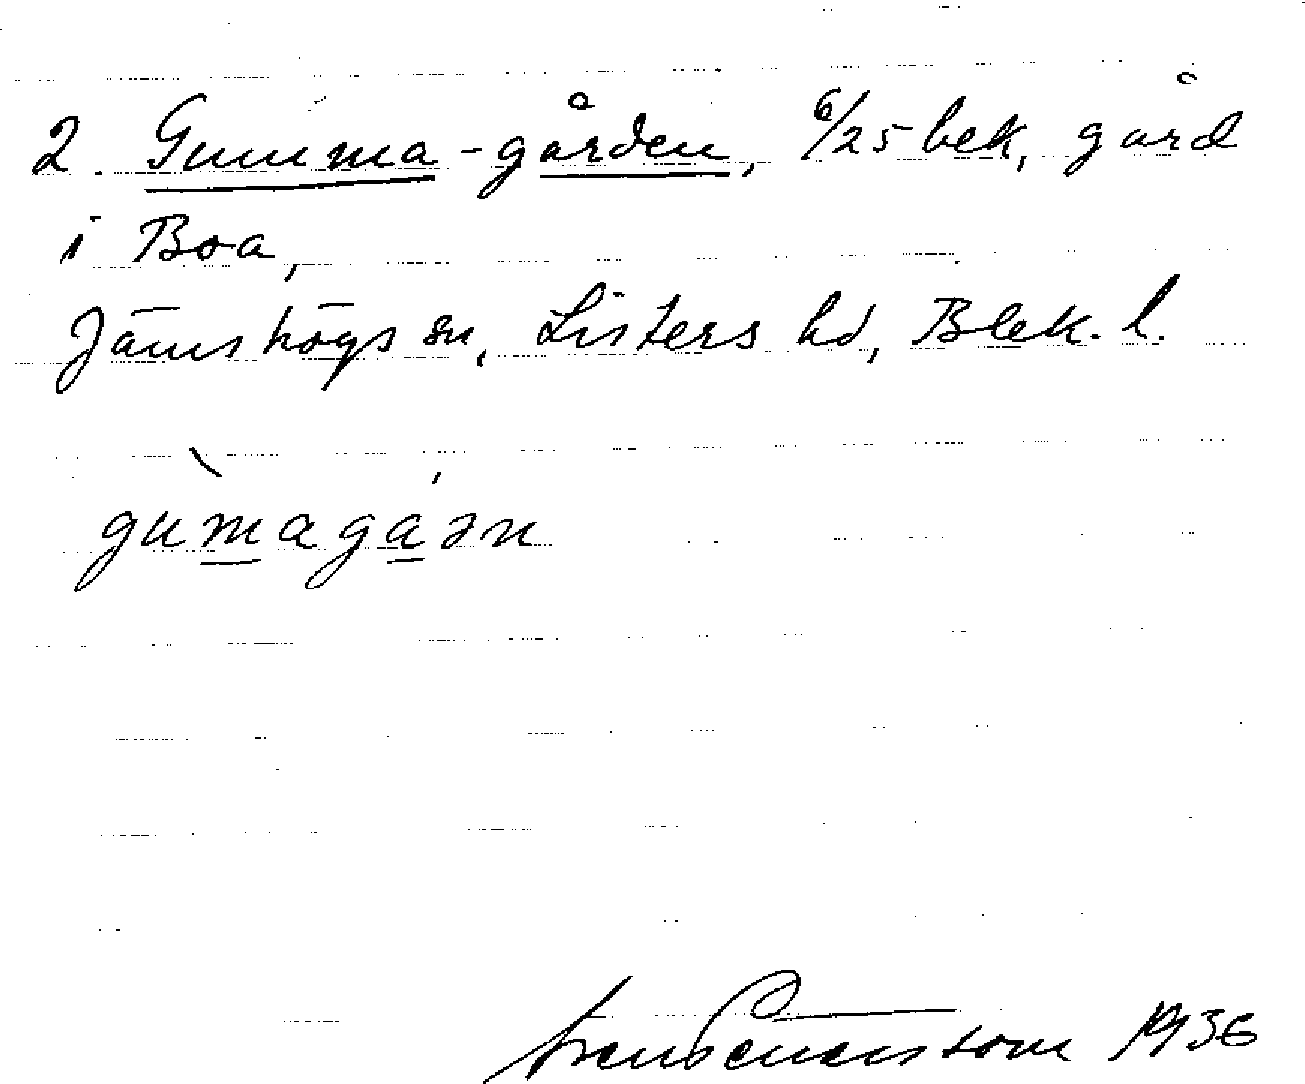 2. Gumma-gården, 6/25 bek, gård
i Boa,
Jämshögs sn, Listers hd, Blek. l.
gumagáən
1936